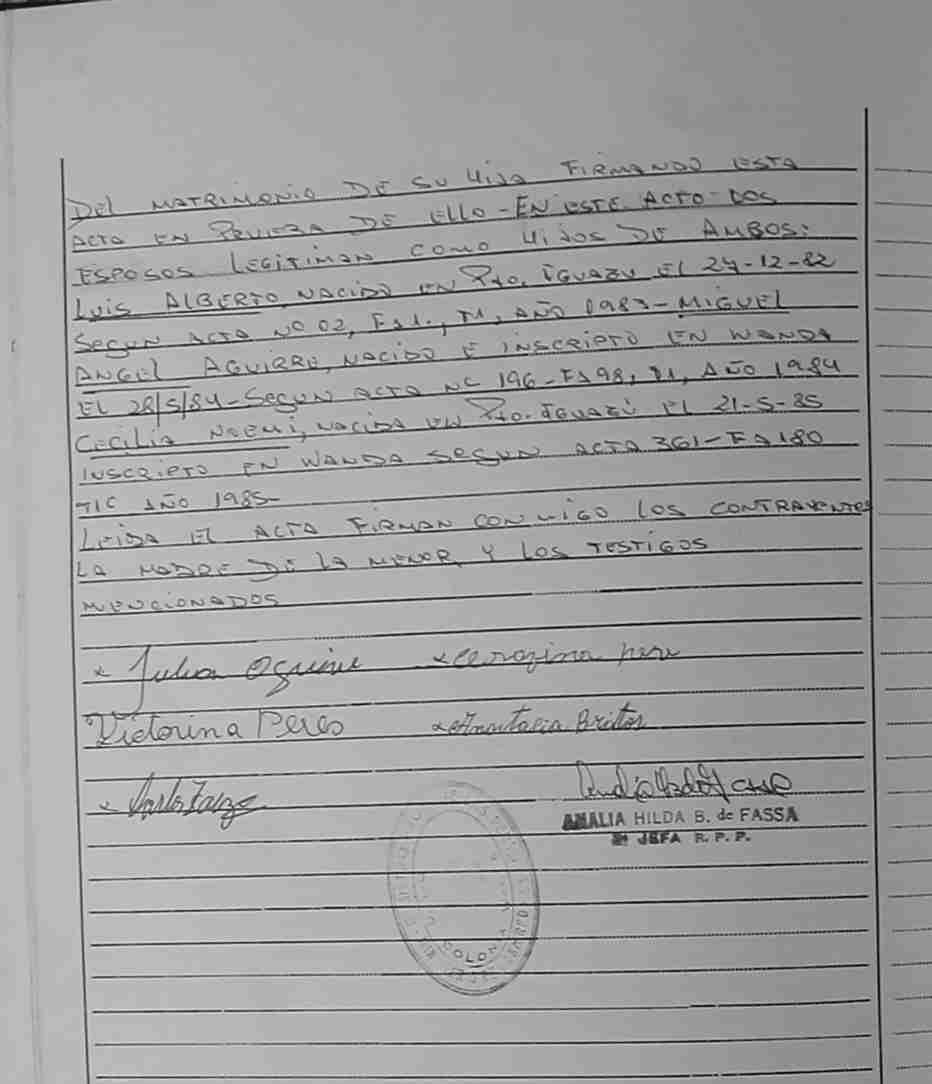 DEL MATRIMONIO DE SU HIJA FIRMANDO ESTA
ACTA EN PRUEBA DE ELLO - EN ESTE ACTO LOS
ESPOSOS LEGITIMAN COMO HIJOS DE AMBOS:
LUIS ALBERTO, NACIDO EN Pto. IGUAZU EL 24-12-82
SEGUN ACTA Nº 02, Fs 1., T1, AÑO 1983 - MIGUEL
ANGEL AGUIRRE, NACIDO E INSCRIPTO EN WANDA
EL 28/5/84 - SEGUN ACTA Nº 196 - Fs 98, T1, AÑO 1984
CECILIA NOEMI, NACIDA EN Pto. IGUAZÚ EL 21-5-85
INSCRIPTO EN WANDA SEGUN ACTA 361 - Fs 180
T1C AÑO 1985-
LEIDA EL ACTA FIRMAN CONMIGO LOS CONTRAYENTES
LA MADRE DE LA MENOR Y LOS TESTIGOS
MENCIONADOS
x Julian x
Victorina Peres x Anastacia Britos
x
AMALIA HILDA B. de FASSA
JEFA R. P. P.
COLONIA